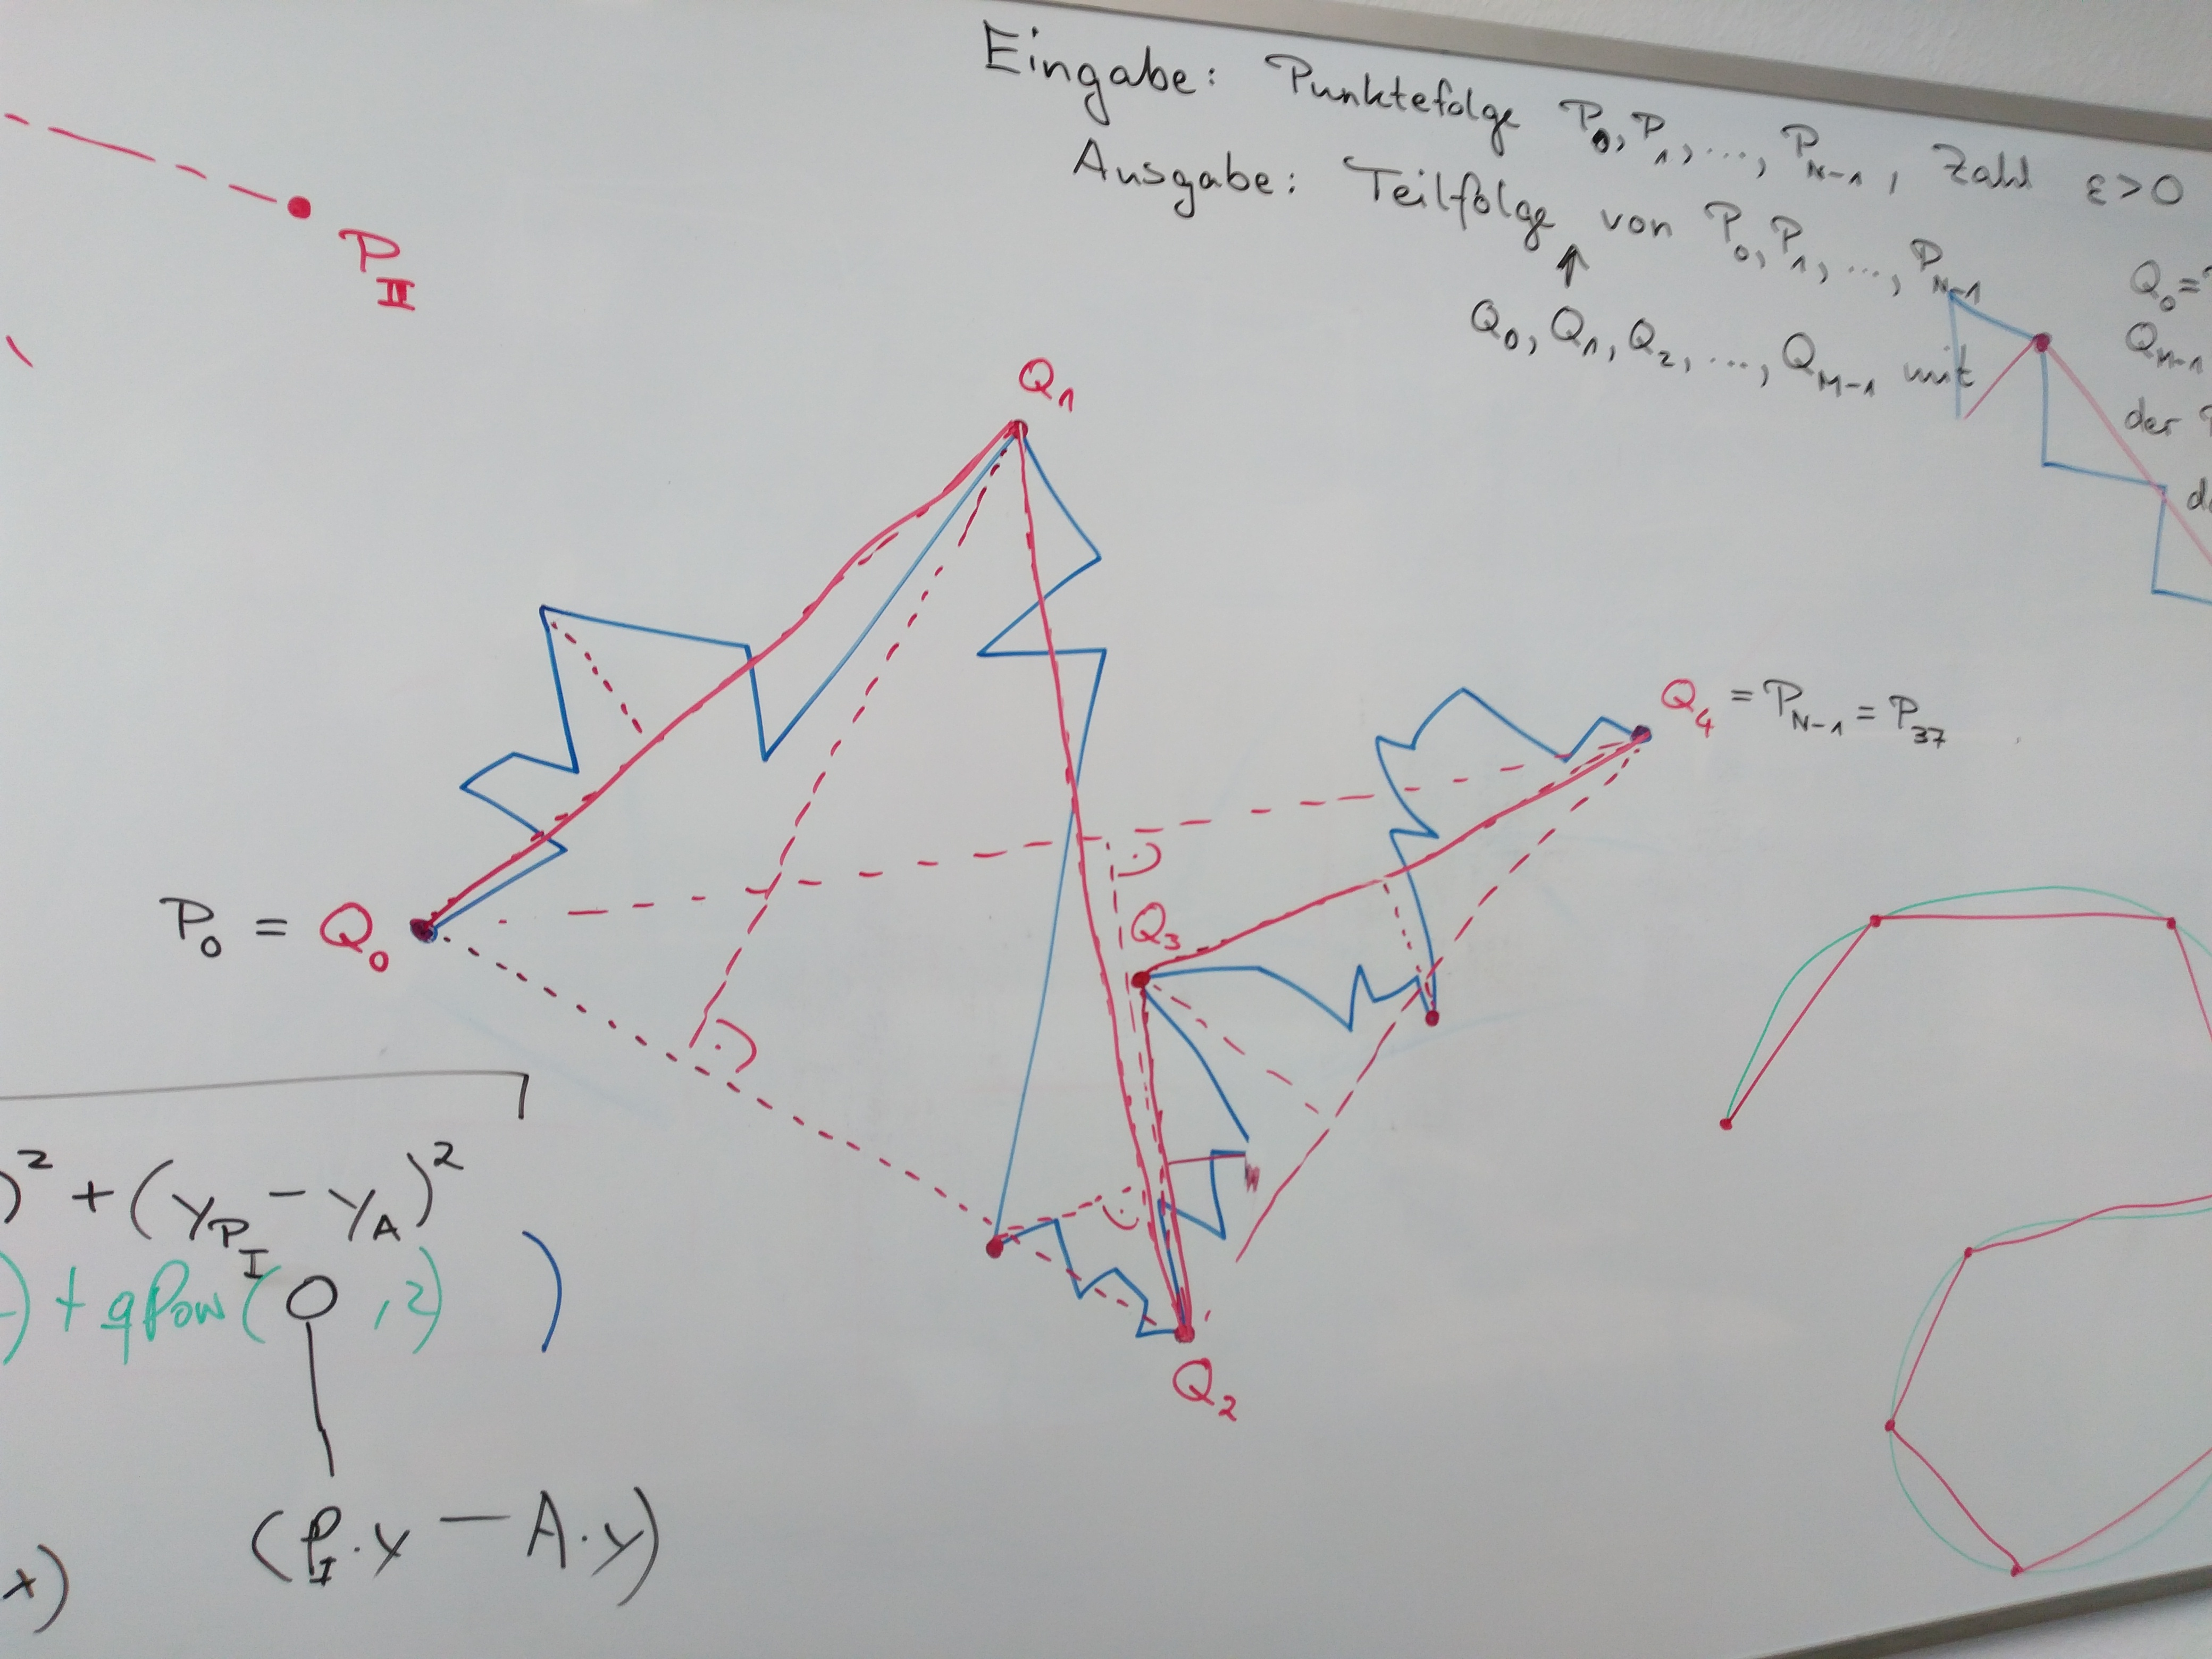 Eingabe: Punktefolge P₀, P₁, ..., P_N-1, Zahl ε>0
Ausgabe: Teilfolge von P₀, P₁, ..., P_N-1
↑
Q₀, Q₁, Q₂, ..., Q_M-1 mit
Q₀ =
Q_M-1
der
P_II
Q₁
Q₄ = P_N-1 = P₃₇
P₀ = Q₀
Q₃
Q₂
)² + (y_P_I - y_A)²
) + qPow( O , 2) )
x) (P_I.y - A.y)